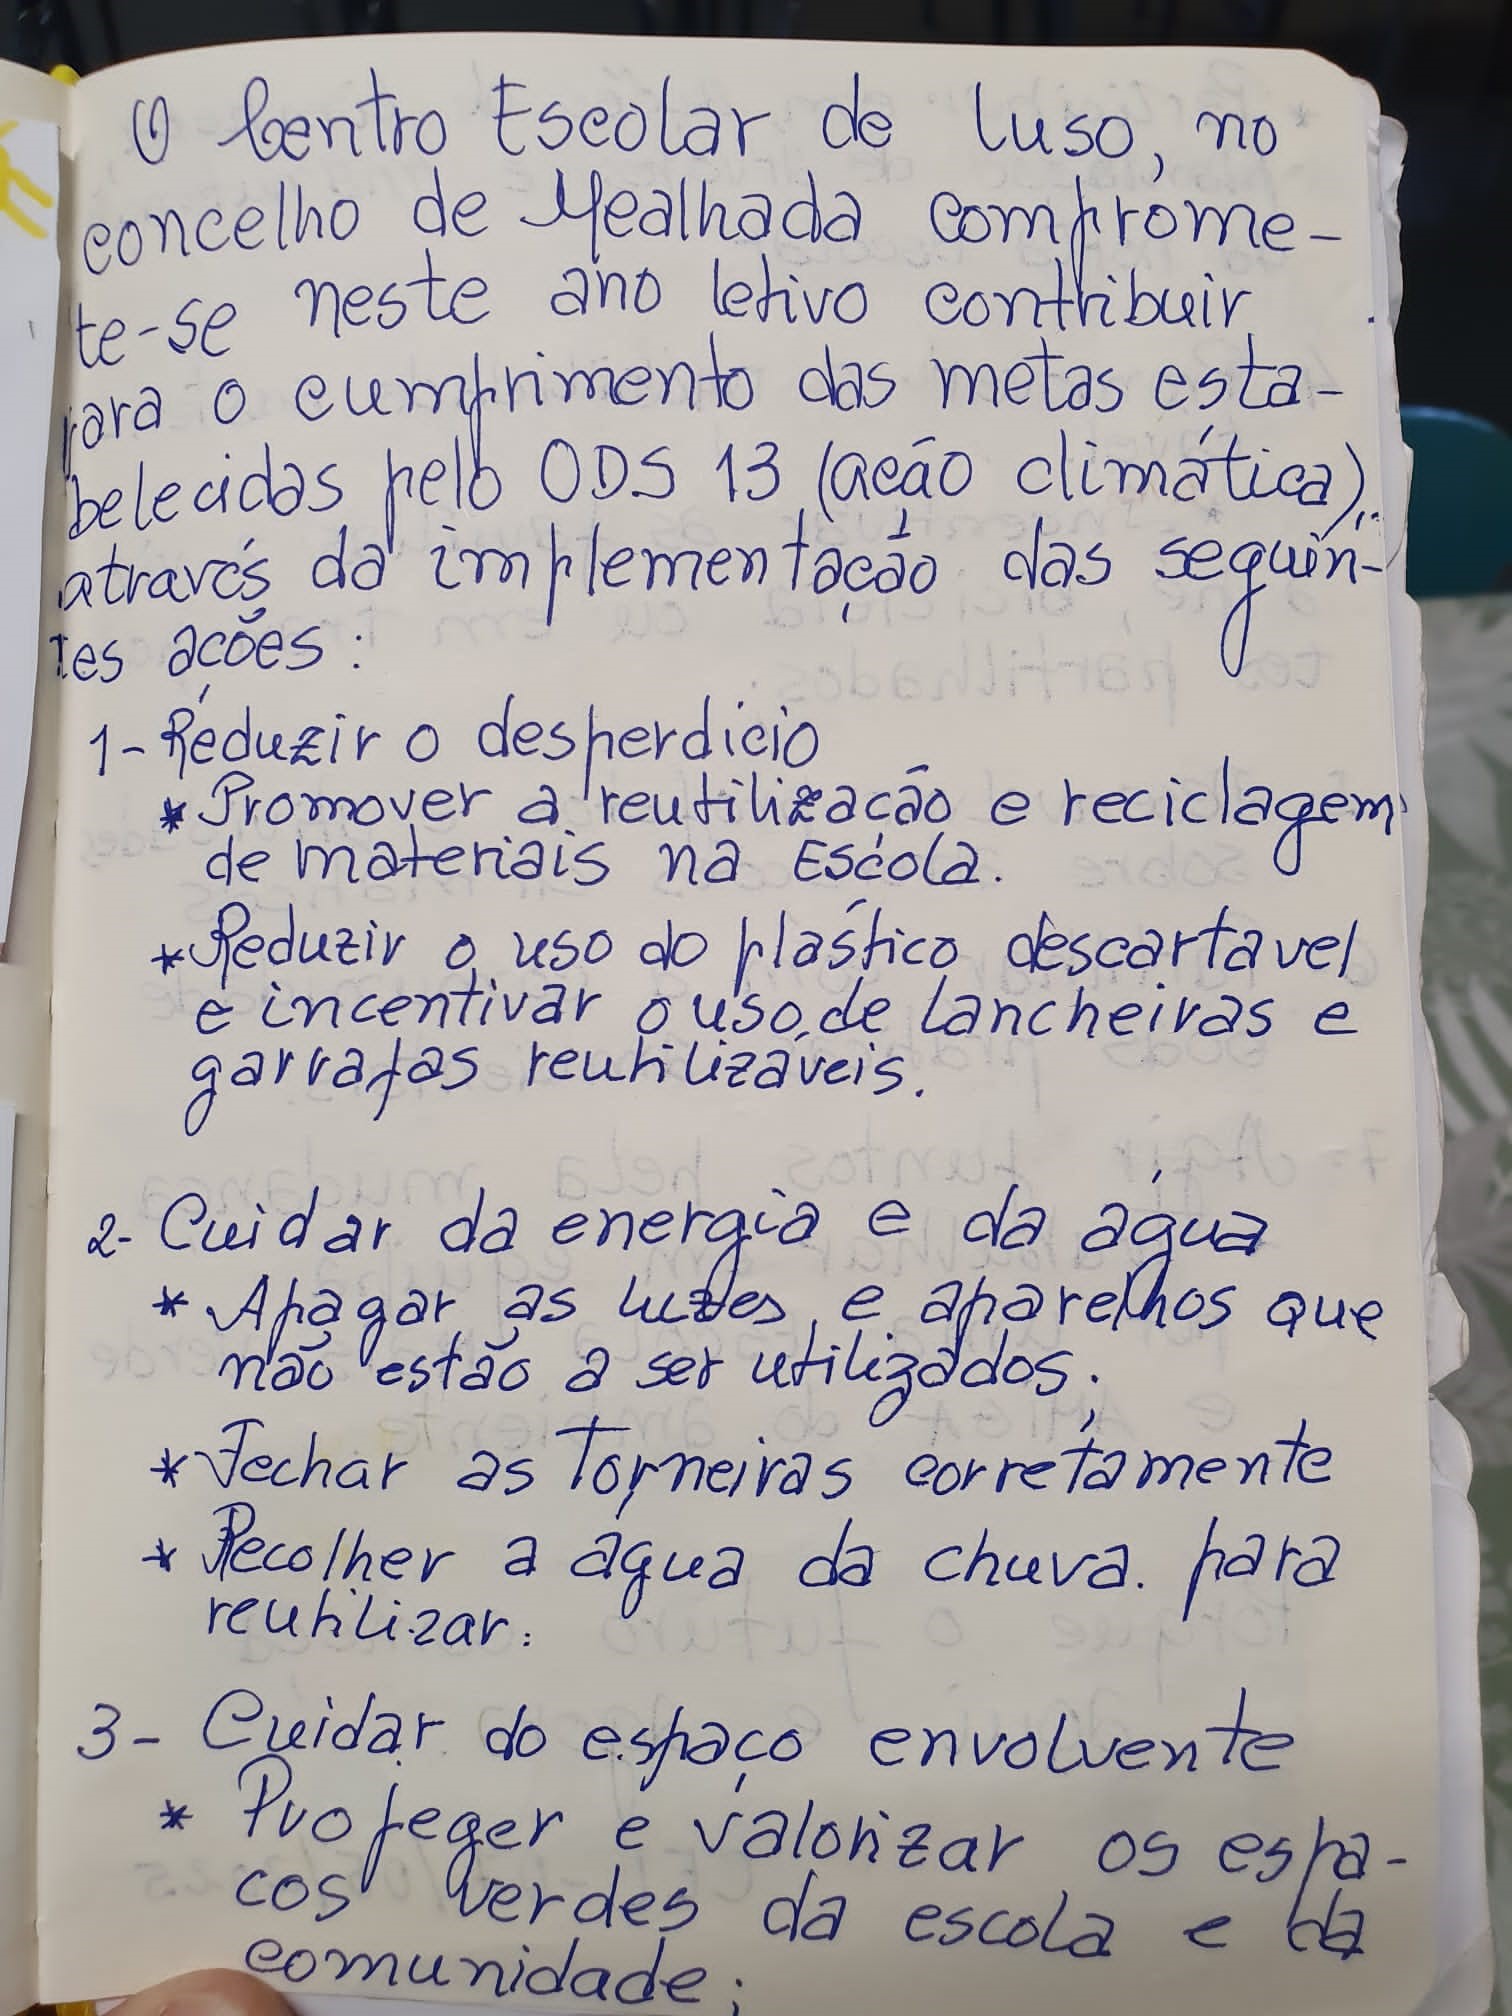 O Centro Escolar de Luso, no
concelho de Mealhada comprome-
te-se neste ano letivo contribuir
para o cumprimento das metas esta-
belecidas pelo ODS 13 (ação climática),
através da implementação das seguin-
tes ações:
1- Reduzir o desperdício
* Promover a reutilização e reciclagem
de materiais na Escola.
* Reduzir o uso do plástico descartavel
e incentivar o uso de lancheiras e
garrafas reutilizáveis.
2- Cuidar da energia e da água
* Apagar as luzes e aparelhos que
não estão a ser utilizados;
* Fechar as Torneiras corretamente
* Recolher a água da chuva. para
reutilizar.
3- Cuidar do espaço envolvente
* Proteger e valorizar os espa-
cos verdes da escola e da
comunidade;